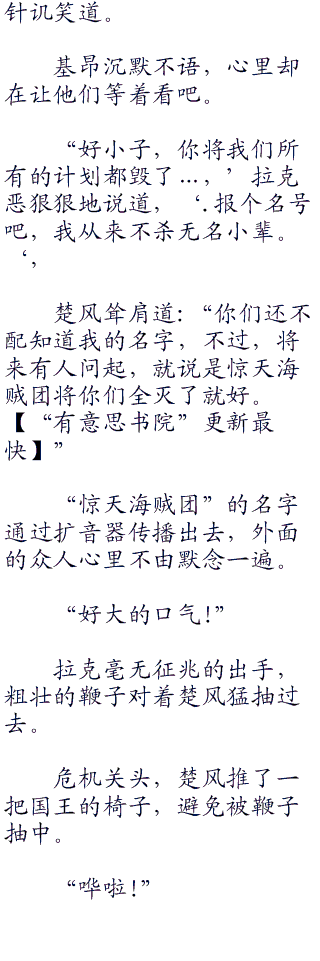 针讥笑道。
基昂沉默不语，心里却
在让他们等着看吧。
“好小子，你将我们所
有的计划都毁了…，’拉克
恶狠狠地说道，‘.报个名号
吧，我从来不杀无名小辈。
‘，
楚风耸肩道：“你们还不
配知道我的名字，不过，将
来有人问起，就说是惊天海
贼团将你们全灭了就好。
【“有意思书院”更新最
快】”
“惊天海贼团”的名字
通过扩音器传播出去，外面
的众人心里不由默念一遍。
“好大的口气！”
拉克毫无征兆的出手，
粗壮的鞭子对着楚风猛抽过
去。
危机关头，楚风推了一
把国王的椅子，避免被鞭子
抽中。
“哗啦！”